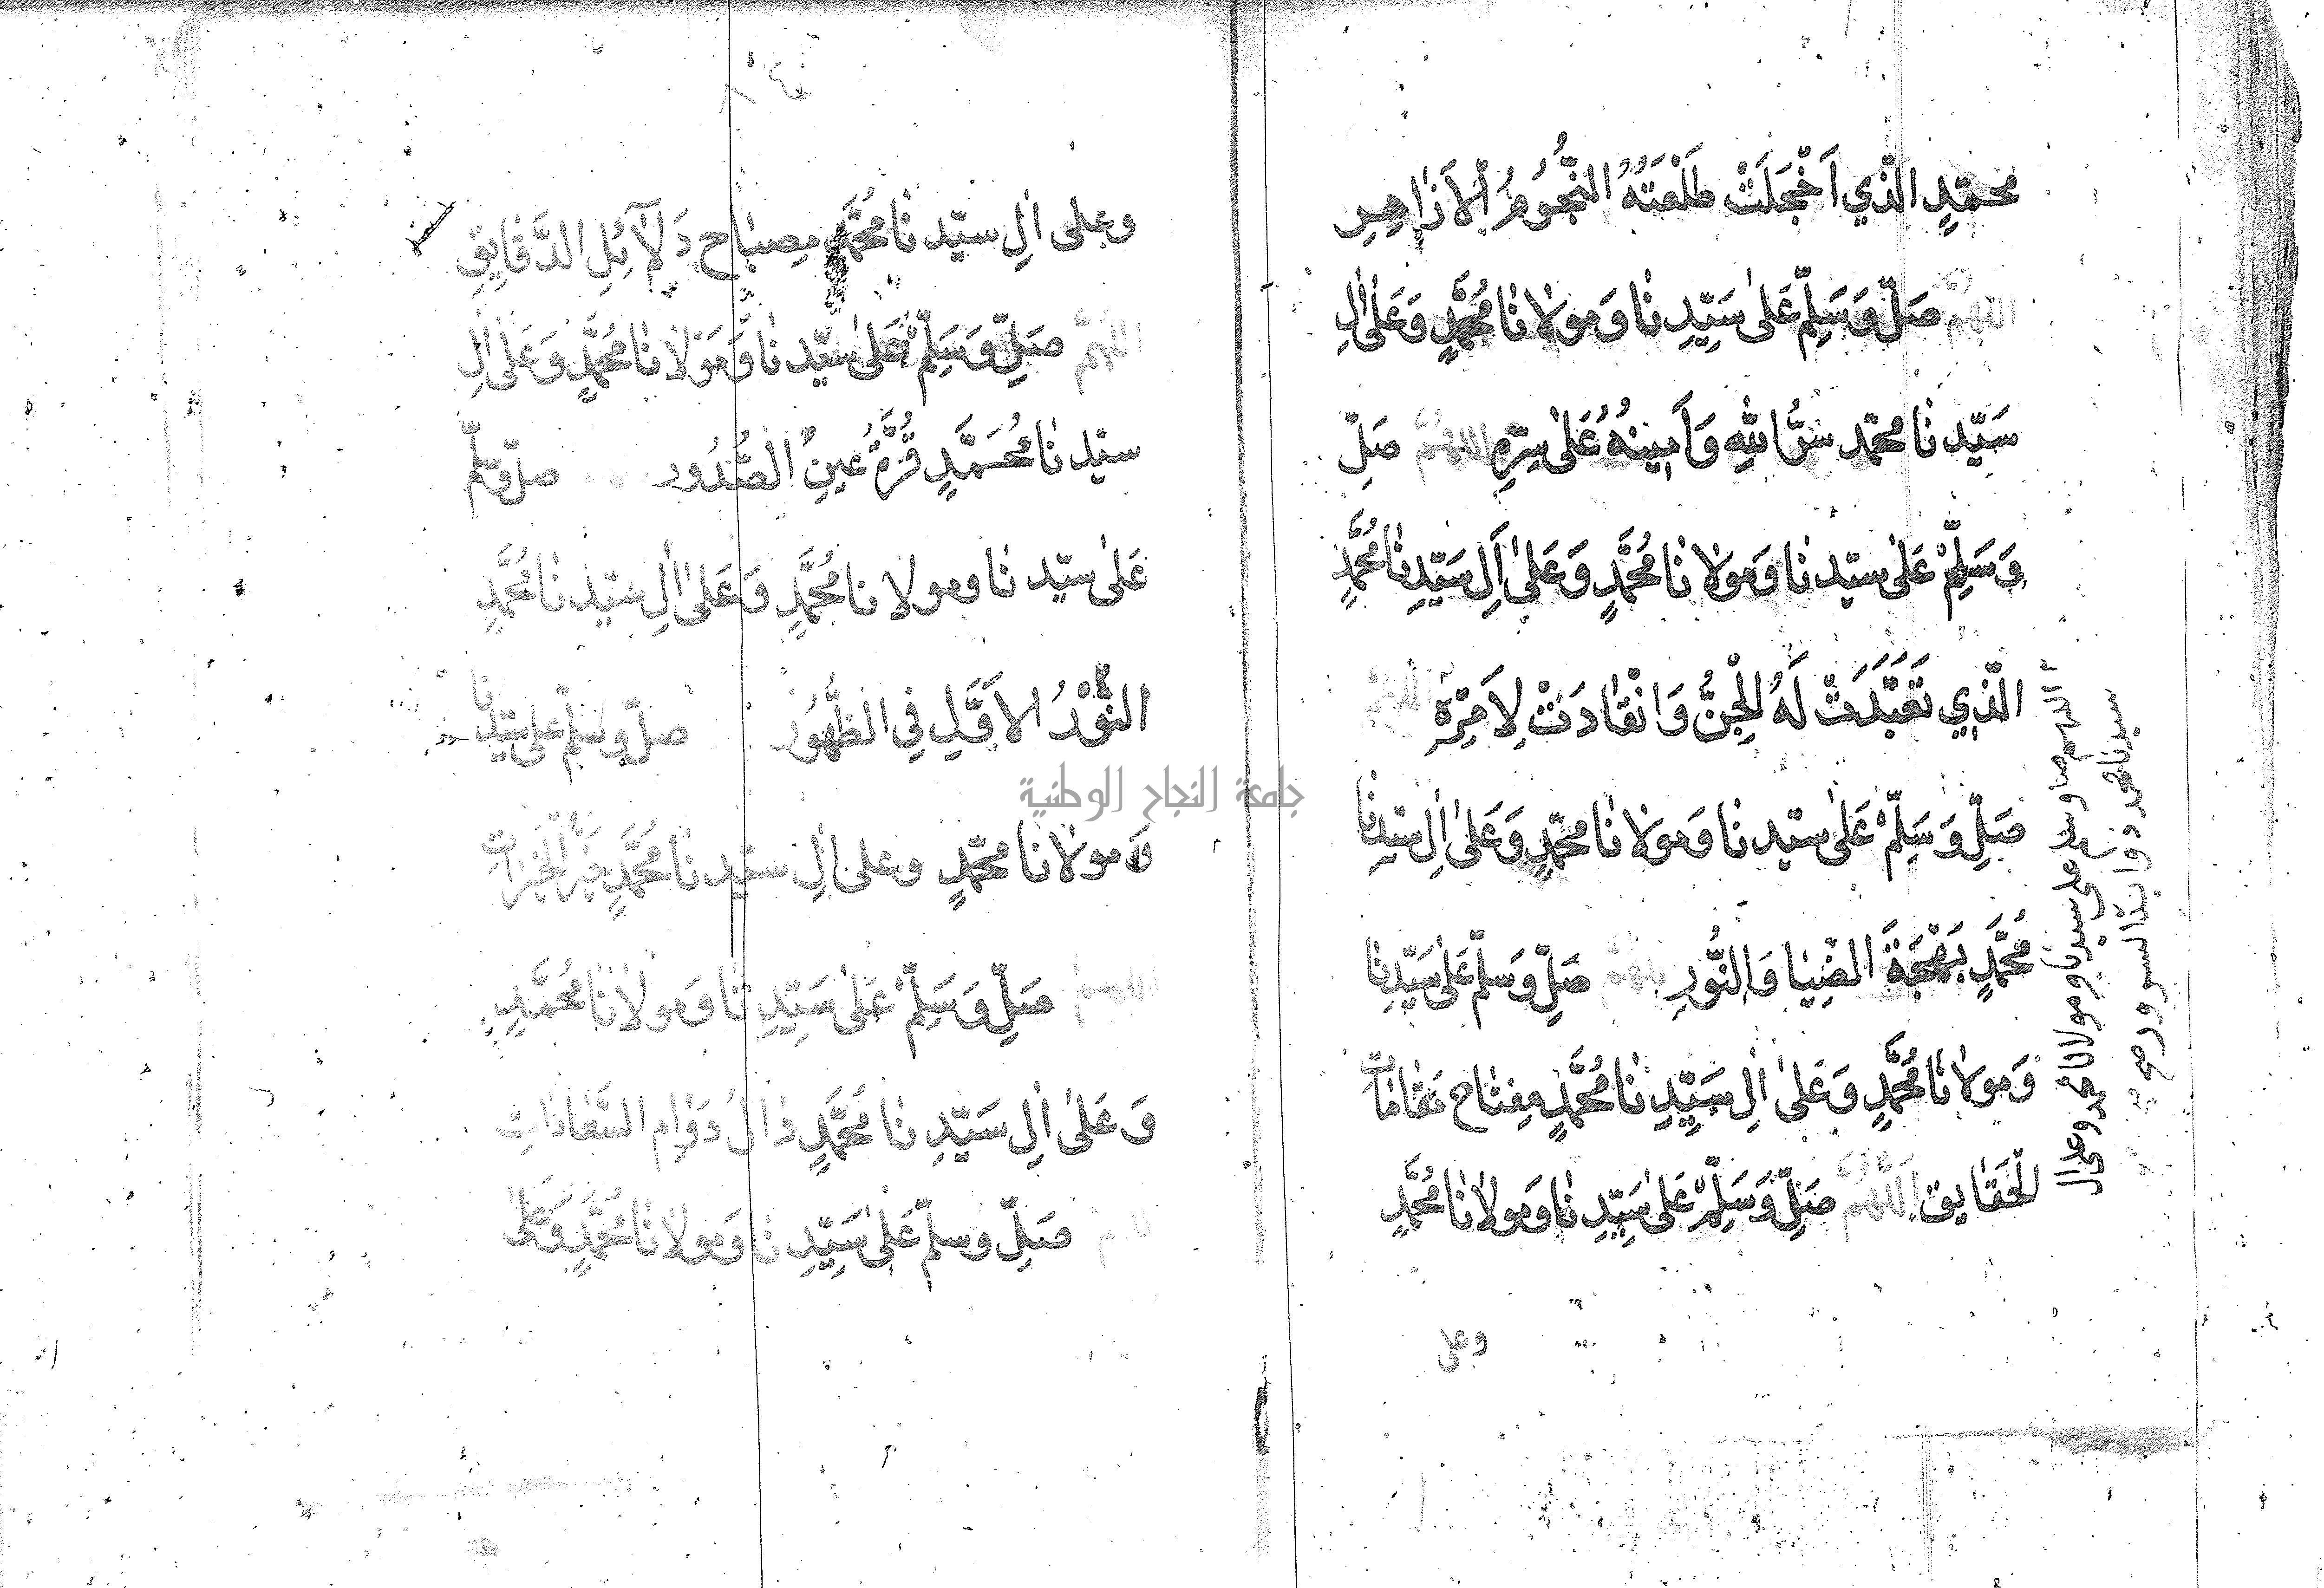 محمّدٍ الّذي اَخْجَلَتْ طَلْعَتُهُ النُّجُومُ الاَزَاهِرِ
اللهم صَلّ وَسَلِّمْ عَلىٰ سَيِّدِنَا وَمولانَا مُحَمَّدٍ وَعَلىٰ اٰلِ
سَيّدنَا محمّد سِرُّ اللهِ وَاَمِينُهُ عَلىٰ سِرِّهِ اللهُمَّ صَلِّ
وَسَلِّمْ عَلىٰ سيّدنَا وَمَولانَا مُحَمَّدٍ وَعَلىٰ اٰلِ سَيِّدِنَا مُحَمَّدٍ
الّذِي تَعَبَّدَتْ لَهُ الْجِنُّ وَانْقَادَتْ لِاَمْرِهِ اللهم
صَلِّ وَسَلِّمْ عَلىٰ سيّدنَا وَمَولانَا محمّدٍ وَعَلىٰ اٰلِ سيّدِنَا
مُحَمَّدٍ بَهْجَةَ الضِّيَا وَالنُّورِ اللهم صَلِّ وَسَلّمْ عَلىٰ سَيّدِنَا
وَمولانَا مُحَمَّدٍ وَعَلىٰ اٰلِ سَيِّدِنَا مُحَمَّدٍ مِفتَاحِ مَقَامَاتِ
الْحَقَايِق اَللّٰهُمَّ صَلِّ وَسَلِّمْ عَلىٰ سَيِّدِنَا وَمولانَا مُحَمَّدٍ
وعلى
اللهم صل وسلم على سيدنا ومولانا محمد وعلى ال
سيدنا محمد السرور
وعلى اٰلِ سيّدنَا مُحَمَّدٍ مِصبَاح دَلَآئِلِ الدَّقَايِقِ
اللهُمَّ صَلِّ وَسَلِّمْ عَلىٰ سيّدنَا وَمَوْلانَا مُحَمَّدٍ وَعَلىٰ اٰلِ
سيّدنَا مُحَمَّدٍ قُرَّةُ عينِ الصُّدُور صلّ وسلّم
عَلىٰ سيّدنَا ومولانا مُحَمَّدٍ وَعَلىٰ اٰلِ سيّدنَا مُحَمَّدٍ
النُّوْرُ الاَوَّلِ فِي الظُّهُورِ صلّ وسلّم على سيّدنا
وَمولانَا محمّدٍ وعلى اٰلِ سيّدنَا مُحَمَّدٍ خَيْرُ الْخَيْرَاتِ
اللهم صَلِّ وَسَلِّمْ عَلىٰ سَيِّدِنَا وَمولانَا مُحَمَّدٍ
وَعَلىٰ اٰلِ سَيّدِنَا مُحَمَّدٍ دَالُ دَوَامِ السَّعَادَاتِ
صَلِّ وسلّمْ عَلىٰ سَيِّدِنَا وَمولانَا مُحَمَّدٍ وَعَلىٰ
جامعة النجاح الوطنية